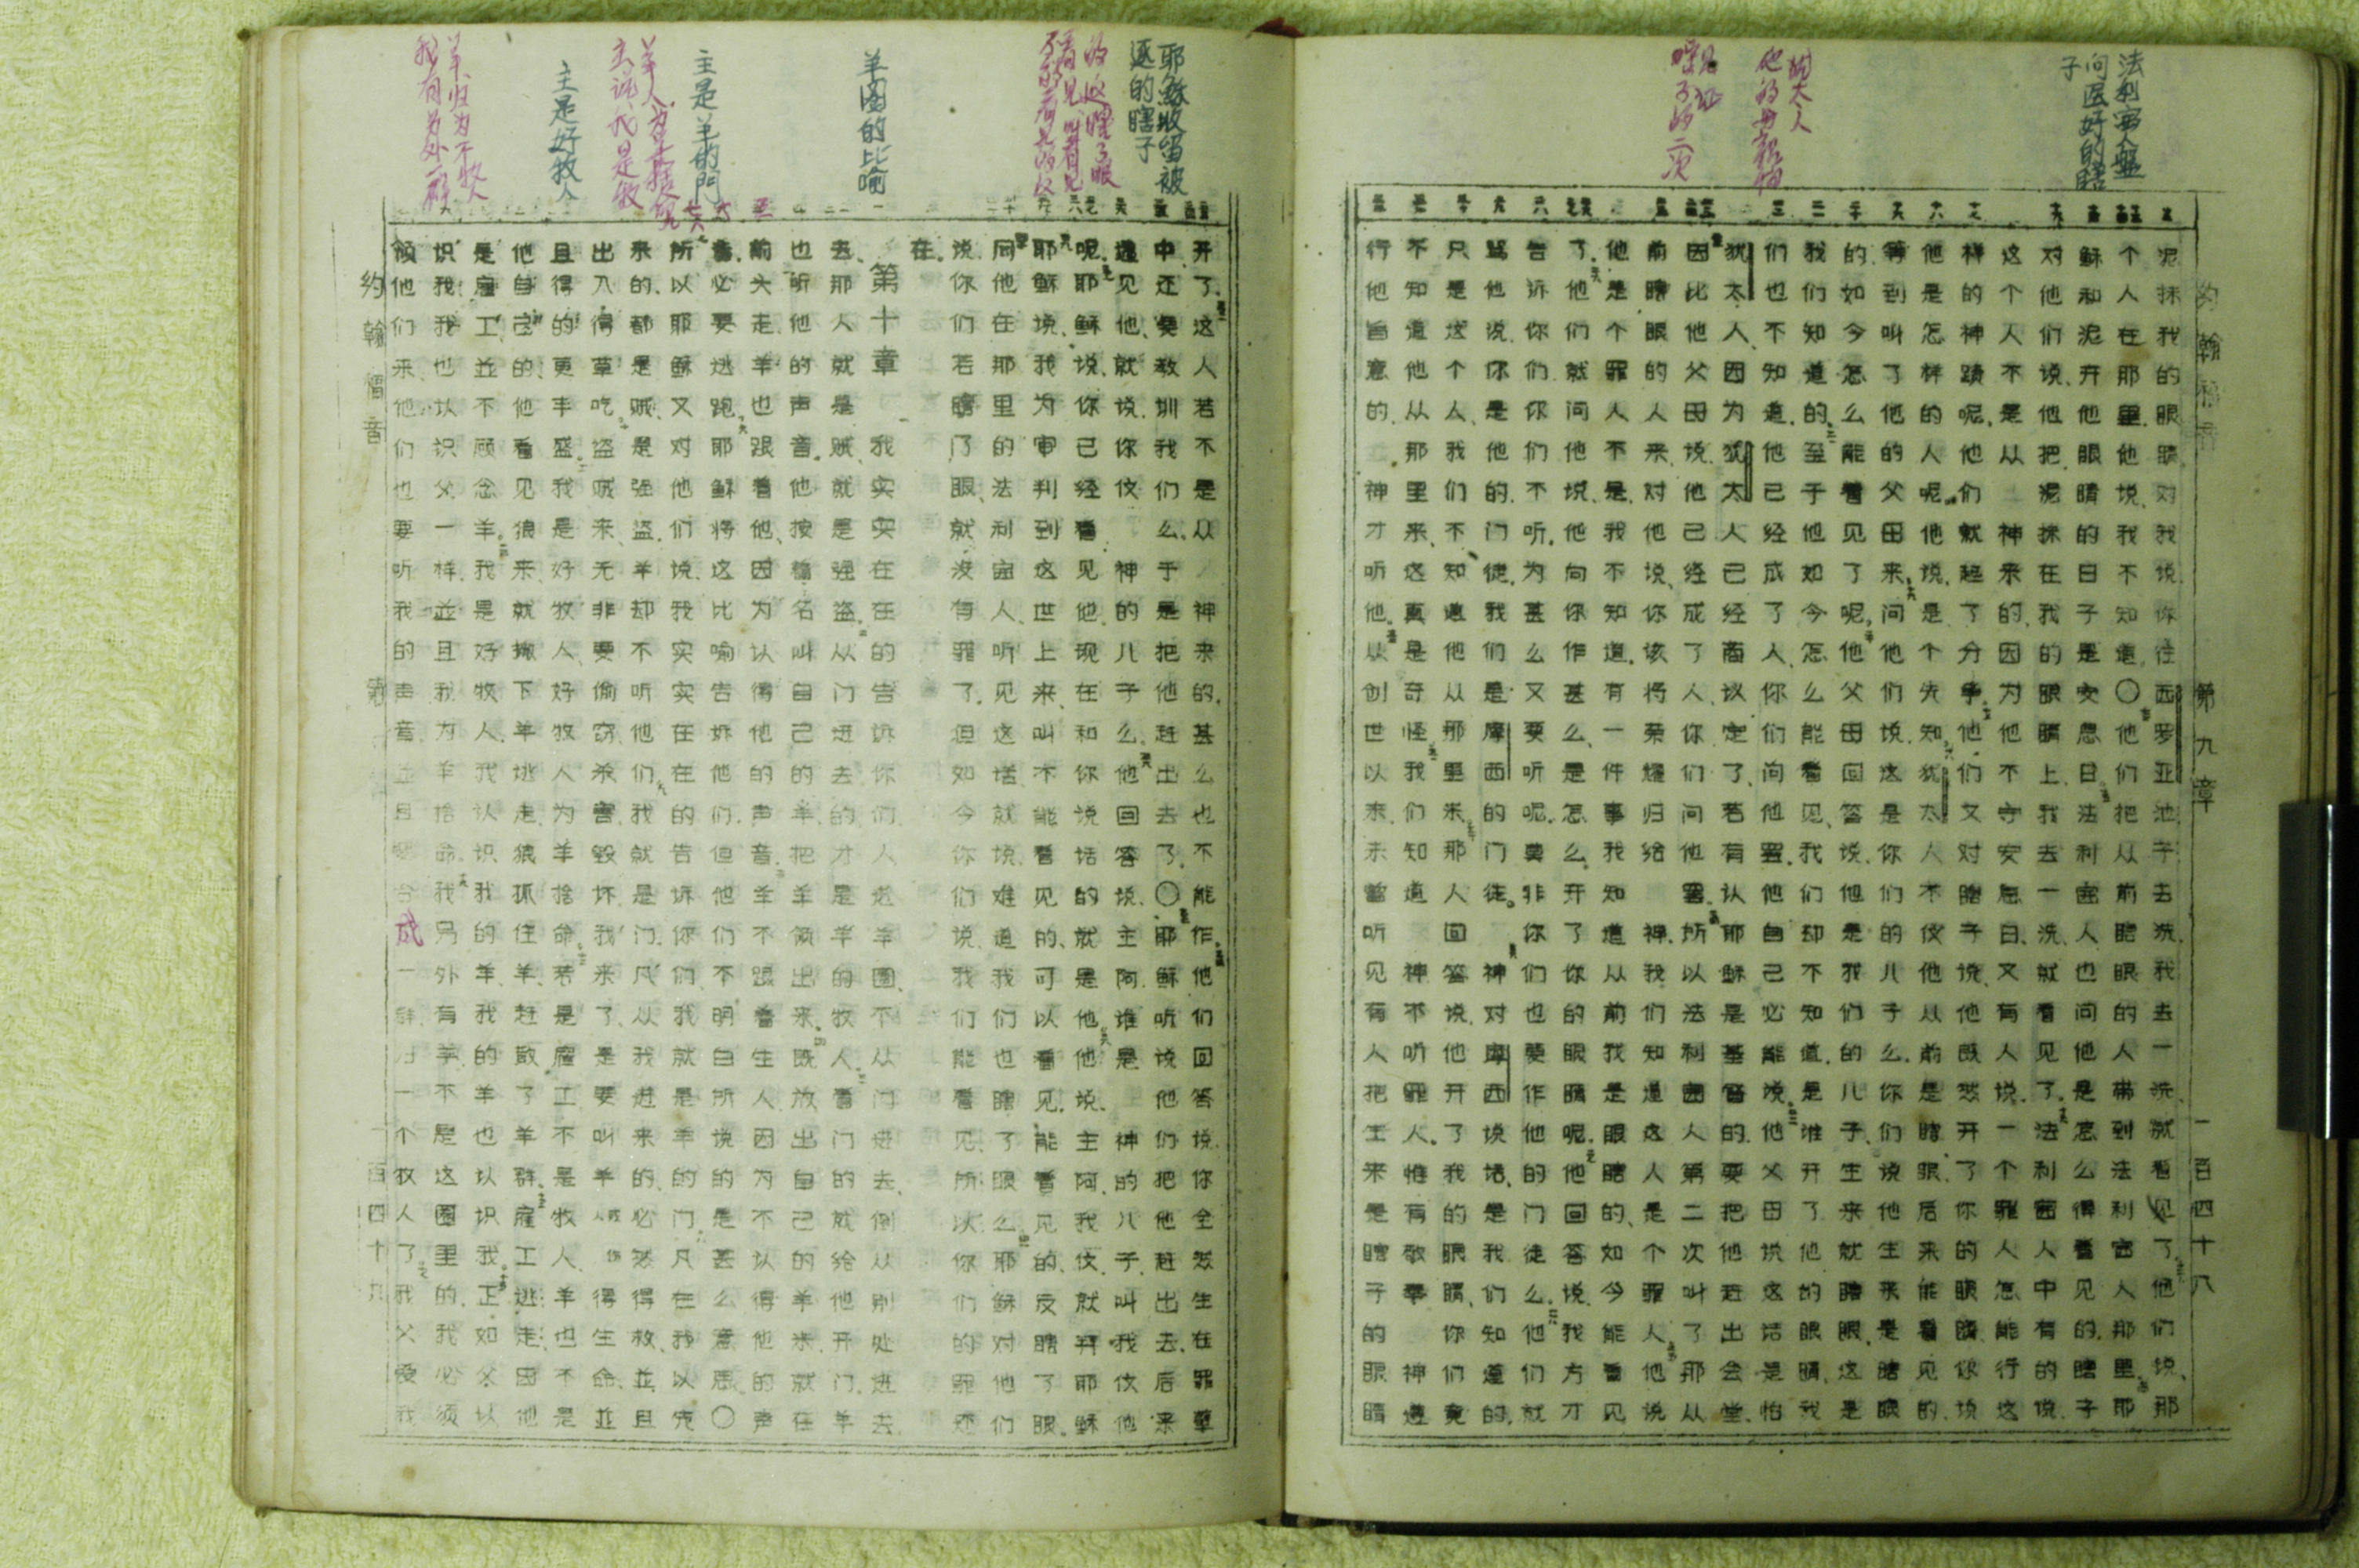 法利赛人盘
问医好的瞎
子
犹太人
他的母亲怕
约翰福音 第九章 一百四十八
泥抹我的眼睛、对我说、你往西罗亚池子去洗、我去一洗、就看见了、他们说、那
个人在那里、他说、我不知道、〇他们把从前瞎眼的人、带到法利赛人那里、耶
稣和泥开他眼睛的日子是安息日、法利赛人也问他是怎么得看见的、瞎子
对他们说、他把泥抹在我的眼睛上、我去一洗、就看见了、法利赛人中有的说、
这个人不是从 神来的、因为他不守安息日、又有人说、一个罪人怎能行这
样的神蹟呢、他们就起了分争、他们又对瞎子说、他既然开了你的眼睛、你说
他是怎样的人呢、他说、是个先知、犹太人不信他从前是瞎眼、后来能看见的、
等到叫了他的父母来、问他们说、这是你们的儿子么、你们说他生来是瞎眼
的、如今怎么能看见呢、他父母回答说、他是我们的儿子、生来就瞎眼、这是
我们知道的、至于他如今怎么能看见、我们却不知道、是谁开了他的眼睛、我
们也不知道、他已经成了人、你们问他罢、他自己必能说、他父母说这话是怕
犹太人、因为犹太人已经商议定了、若有认耶稣是基督的、要把他赶出会堂、
因此他父母说、他已经成了人、你们问他罢、所以法利赛人第二次叫了那从
前瞎眼的人来、对他说、你该将荣耀归给 神、我们知道这人是个罪人、他说、
他是个罪人不是、我不知道、有一件事我知道、从前我是眼瞎的、如今能看见
了、他们就问他说、他向你作甚么、是怎么开了你的眼睛呢、他回答说、我方才
告诉你们、你们不听、为甚么又要听呢、莫非你们也要作他的门徒么、他们就
骂他说、你是他的门徒、我们是摩西的门徒。 神对摩西说话、是我们知道的、
只是这个人、我们不知道他从那里来、那人回答说、他开了我的眼睛、你们竟
不知道他从那里来、这真是奇怪、我们知道 神不听罪人。惟有敬奉 神遵
行他旨意的、 神才听他、从创世以来、未曾听见有人把生来是瞎子的眼睛
耶稣收留被
逐的瞎子
羊圈的比喻
主是羊的門
主是好牧人
开了、这人若不是从 神来的、甚么也不能作、他们回答说、你全然生在罪孽
中、还要教训我们么、于是把他赶出去了、〇耶稣听说他们把他赶出去、后来
遇见他、就说、你信 神的儿子么、他回答说、主阿、谁是 神的儿子、叫我信他
呢、耶稣说、你已经看见他、现在和你说话的就是他、他说、主阿、我信、就拜耶稣、
耶稣说、我为审判到这世上来、叫不能看见的、可以看见、能看见的、反瞎了眼。
同他在那里的法利赛人、听见这话、就说、难道我们也瞎了眼么、耶稣对他们
说、你们若瞎了眼、就没有罪了、但如今你们说、我们能看见、所以你们的罪还
在、
第十章
我实实在在的告诉你们、人进羊圈、不从门进去、倒从别处进去、
那人就是贼、就是强盗、从门进去的、才是羊的牧人、看门的就给他开门、羊
也听他的声音、他按着名叫自己的羊、把羊领出来、既放出自己的羊来、就在
前头走、羊也跟着他、因为认得他的声音、羊不跟着生人、因为不认得他的声
音、必要逃跑、耶稣将这比喻告诉他们、但他们不明白所说的是甚么意思、〇
所以耶稣又对他们说、我实实在在的告诉你们、我就是羊的门、凡在我以先
来的、都是贼、是强盗、羊却不听他们、我就是门、凡从我进来的、必然得救、並且
出入得草吃、盗贼来、无非要偷窃杀害毁坏、我来了、是要叫羊得生命、並
且得的更丰盛、我是好牧人、好牧人为羊捨命、若是雇工、不是牧人、羊也不是
他自己的、他看见狼来、就撇下羊逃走、狼抓住羊、赶散了羊群、雇工逃走、因他
是雇工、並不顾念羊、我是好牧人、我认识我的羊、我的羊也认识我、正如父认
识我、我也认识父一样、並且我为羊捨命、我另外有羊、不是这圈里的、我必须
领他们来、他们也要听我的声音、並且要合成一群归一个牧人了、我父爱我
约翰福音 第 一百四十九